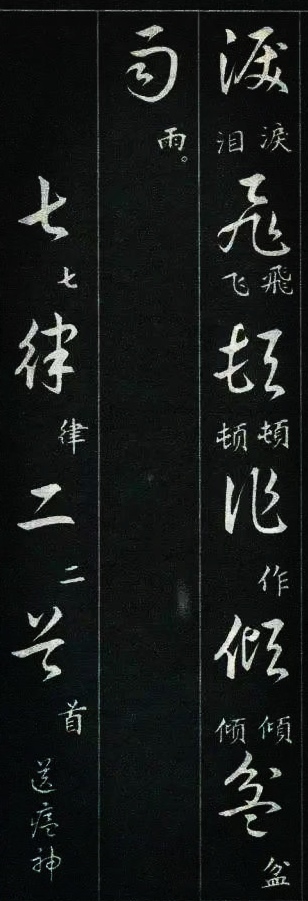 淚飛頓作傾盆
淚飛頓作傾盆
泪飞顿倾
雨
雨。
七律二首
七律二首
送瘟神